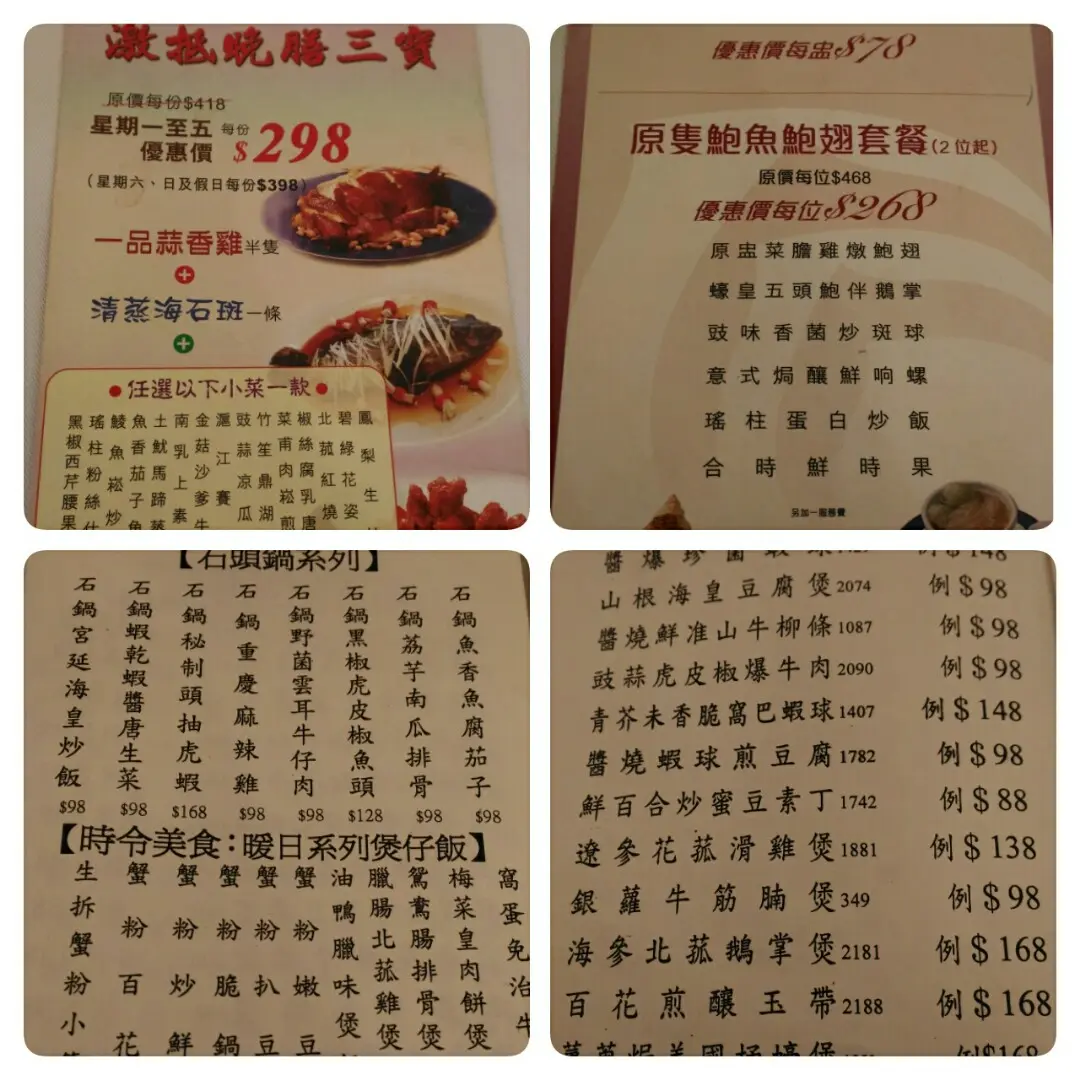 激抵晚膳三寶
原價每份$418
星期一至五 每份
優惠價 $298
(星期六、日及假日每份$398)
一品蒜香雞半隻
清蒸海石斑一條
●任選以下小菜一款●
黑椒西芹腰果
瑤柱粉絲
鯪魚崧炒
魚香茄子魚
土魷馬蹄蒸
南乳上素
金菇沙爹牛
滬江賽
豉蒜凉瓜
竹笙鼎湖
菜甫肉崧煎
椒絲腐乳唐
北菰紅燒
碧綠花姿
鳳梨生
優惠價每盅$78
原隻鮑魚鮑翅套餐(2位起)
原價每位$468
優惠價每位$268
原盅菜膽雞燉鮑翅
蠔皇五頭鮑伴鵝掌
豉味香菌炒斑球
意式焗釀鮮响螺
瑤柱蛋白炒飯
合時鮮時果
另加一服務費
【石頭鍋系列】
石鍋宮延海皇炒飯 $98
石鍋蝦乾蝦醬唐生菜 $98
石鍋秘制頭抽虎蝦 $168
石鍋重慶麻辣雞 $98
石鍋野菌雲耳牛仔肉 $98
石鍋黑椒虎皮椒魚頭 $128
石鍋荔芋南瓜排骨 $98
石鍋魚香魚腐茄子 $98
【時令美食:暖日系列煲仔飯】
生拆蟹粉小
蟹粉百花
蟹粉炒鮮
蟹粉脆鍋
蟹粉扒豆
蟹粉嫩豆
油鴨臘味煲
臘腸北菰雞煲
鴛鴦腸排骨煲
梅菜皇肉餅煲
窩蛋免治牛
醬爆珍菌蝦球 例$148
山根海皇豆腐煲2074 例$98
醬燒鮮准山牛柳條1087 例$98
豉蒜虎皮椒爆牛肉2090 例$98
青芥末香脆窩巴蝦球1407 例$148
醬燒蝦球煎豆腐1782 例$98
鮮百合炒蜜豆素丁1742 例$88
遼參花菰滑雞煲1881 例$138
銀蘿牛筋腩煲349 例$98
海參北菰鵝掌煲2181 例$168
百花煎釀玉帶2188 例$168
例$168